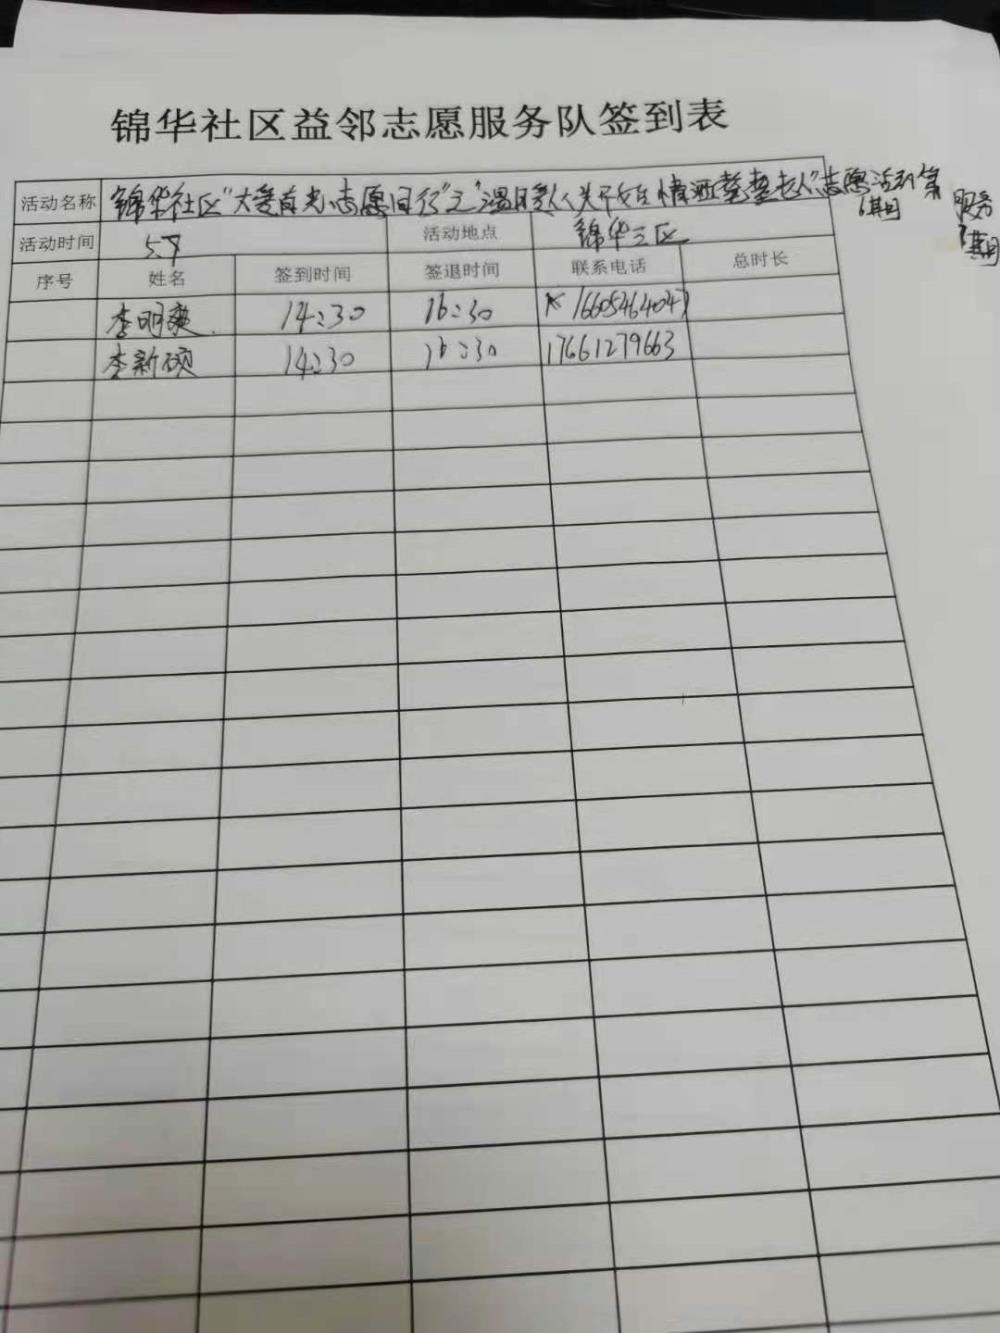 锦华社区益邻志愿服务队签到表
活动名称 锦华社区"大爱有光·志愿同行"之"温暖人人关怀女 情洒耄耋老人"志愿活动第 服务
6期
活动时间 5.7 活动地点 锦华三区
序号 姓名 签到时间 签退时间 联系电话 总时长
李明爽 14:30 16:30 16605464047
李新硕 14:30 16:30 17661279663